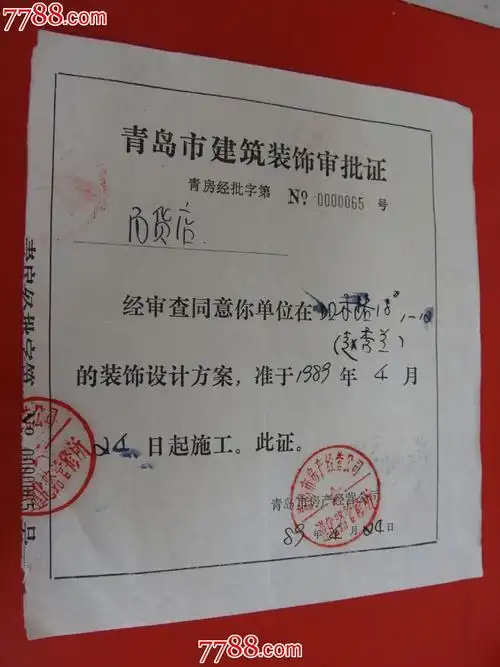 7788.com
青岛市建筑装饰审批证
青房经批字第 № 0000065 号
百货店
经审查同意你单位在
的装饰设计方案，准于1989年4月
24日起施工。此证。
青岛市房产经营公司
89年4月24日
青房经批字第 № 0000065 号
市房产经营公司
7788.com